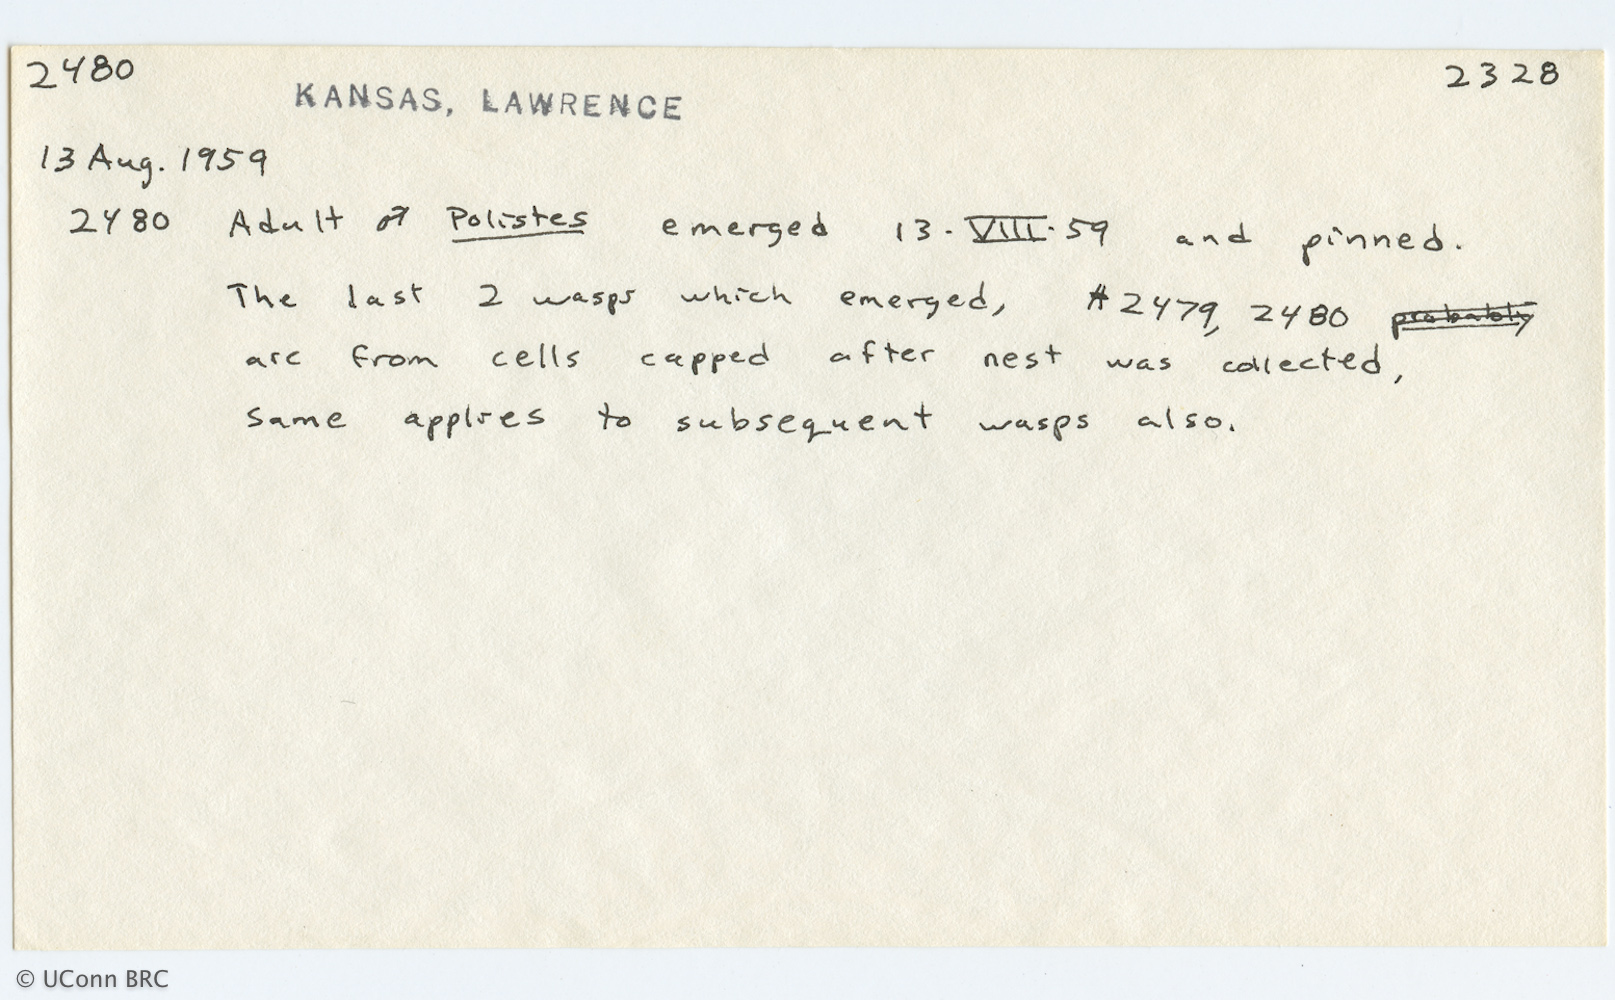 2480 2328
KANSAS, LAWRENCE
13 Aug. 1959
2480 Adult ♂ Polistes emerged 13.VIII.59 and pinned.
The last 2 wasps which emerged, #2479, 2480 probably
are from cells capped after nest was collected,
Same applies to subsequent wasps also.
© UConn BRC